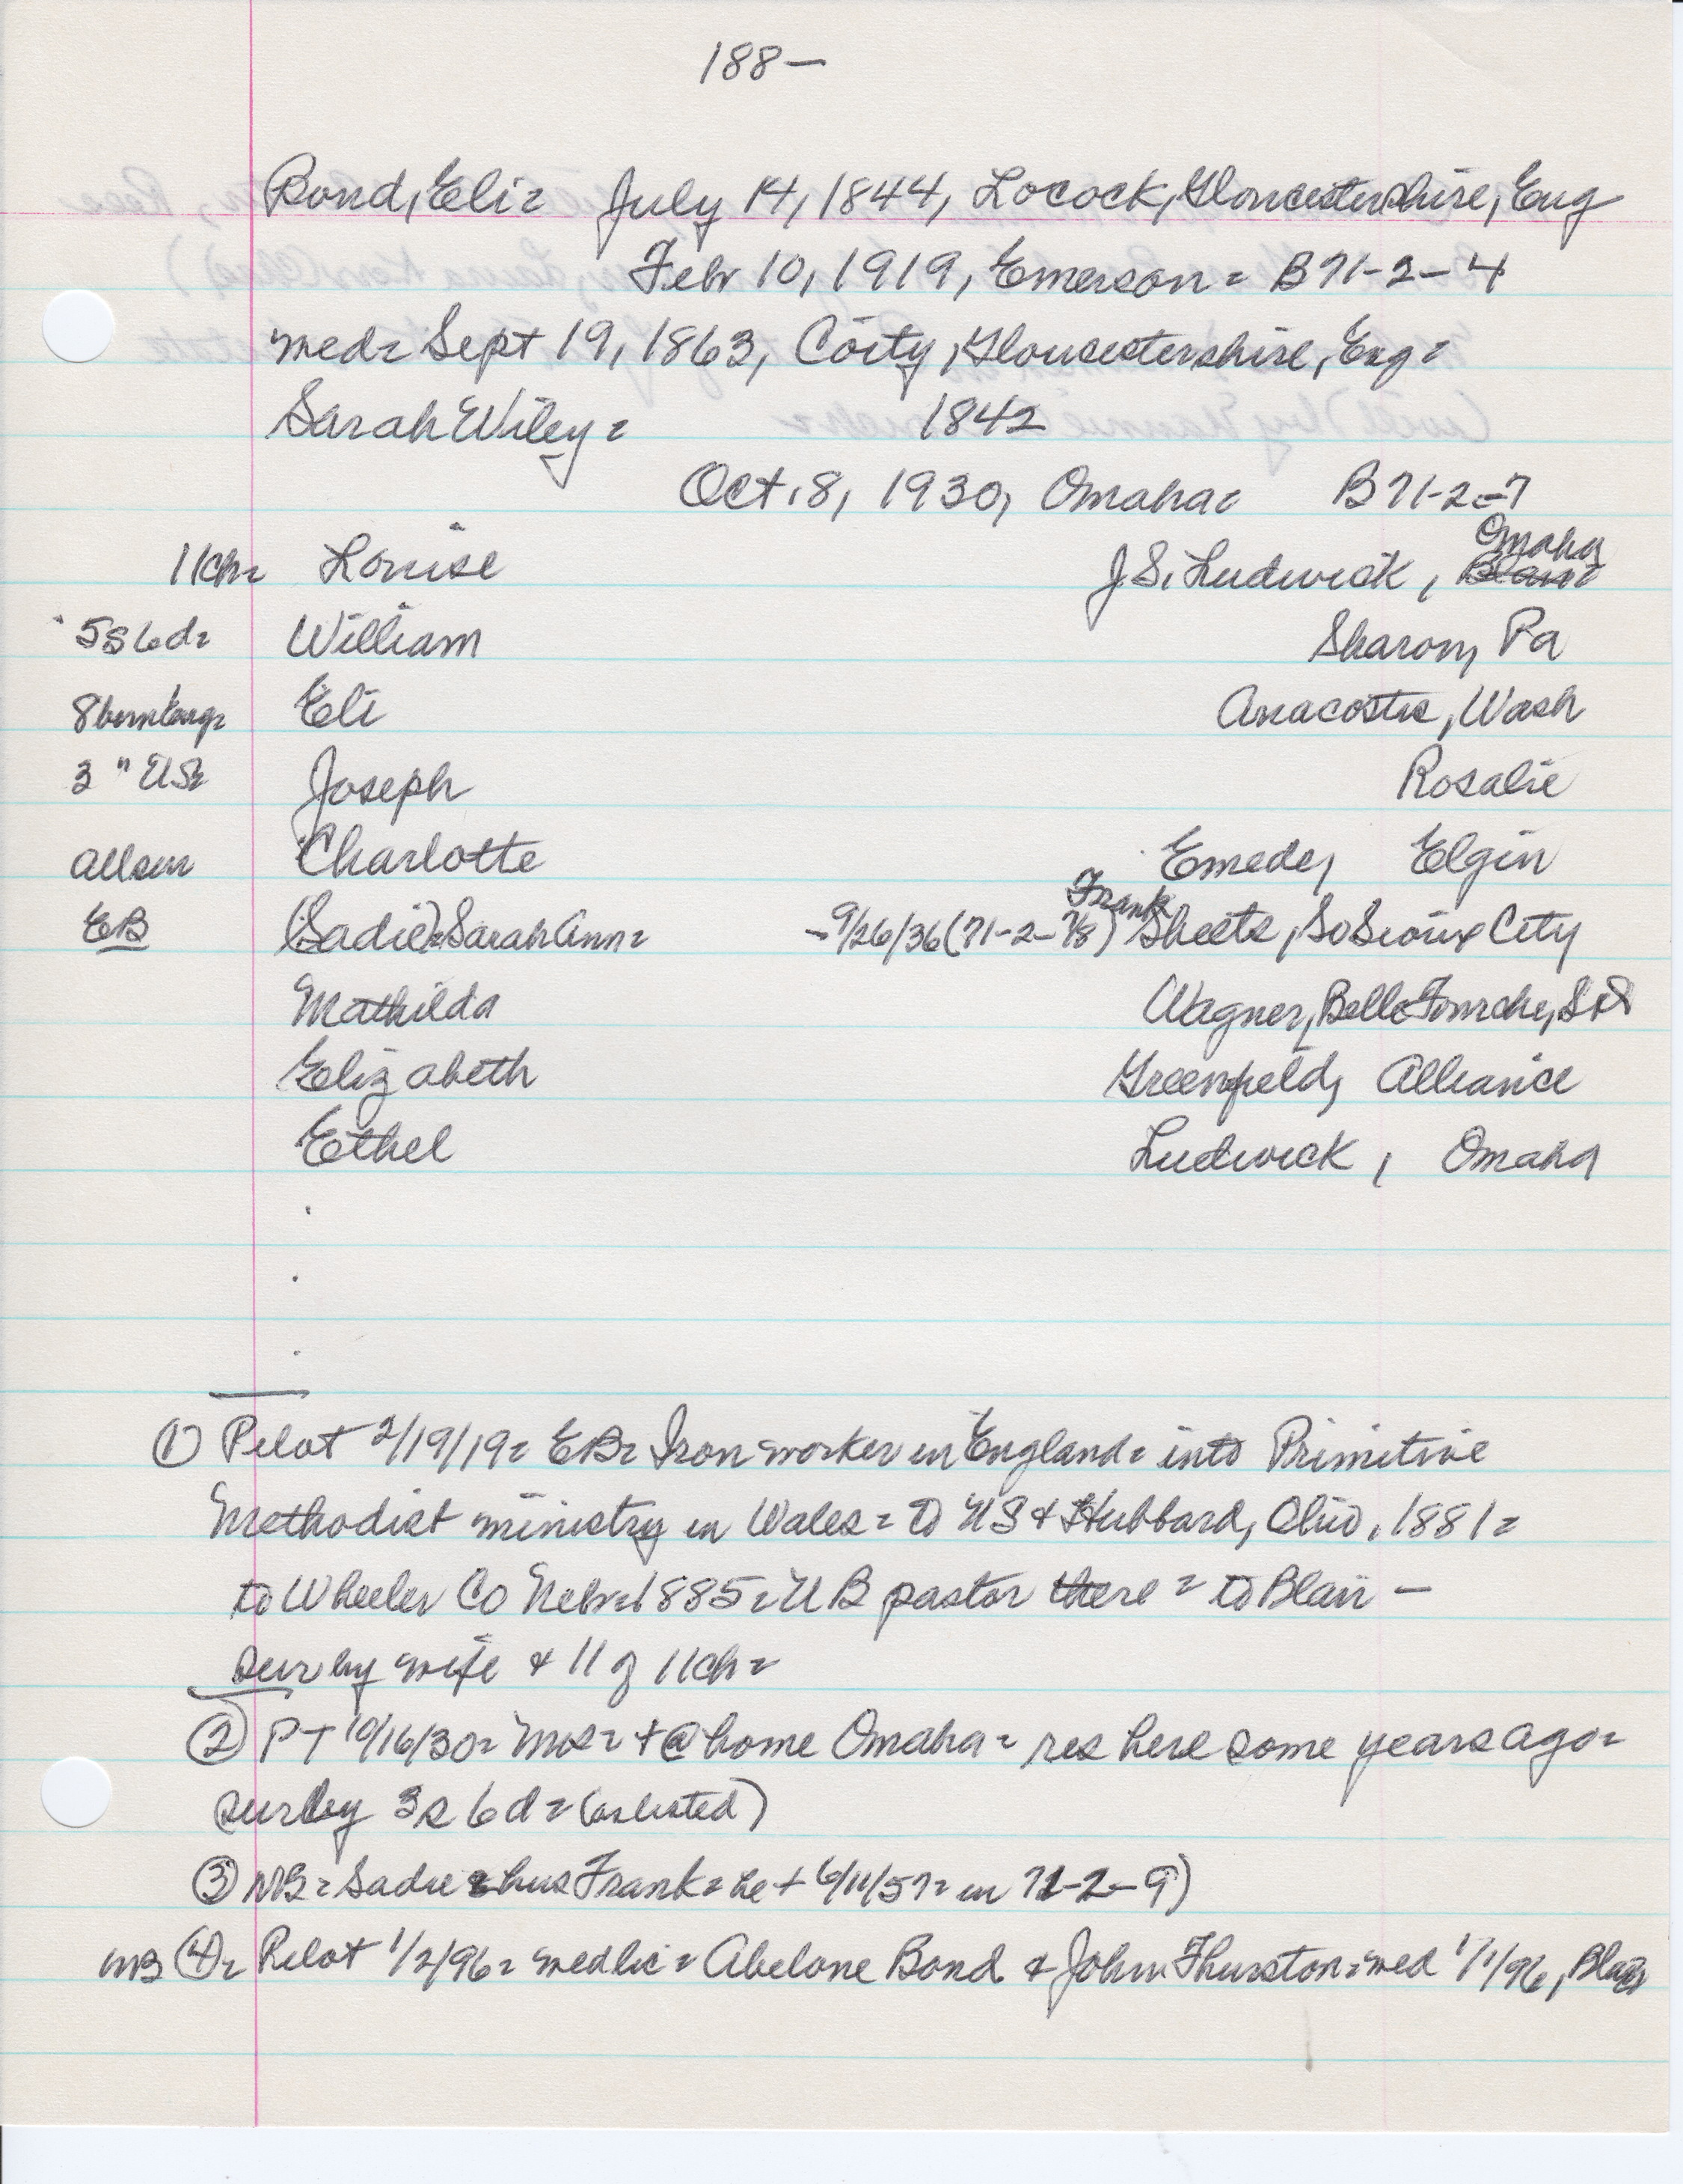 188—
Bond, Eli = July 14, 1844, Locock, Gloucestershire, Eng
Febr 10, 1919, Emerson = B71-2-4
med = Sept 19, 1863, Coity, Gloucestershire, Eng =
Sarah Wiley = 1842
Oct. 8, 1930, Omaha = B71-2-7
11ch = Louise J.S. Ludwick, Omaha
5s 6d = William Sharon, Pa
8 born Eng = Eli Anacostis, Wash
3 " US = Joseph Rosalie
all sur Charlotte Emede, Elgin
EB (Sadie) = Sarah Ann = - 9/26/36 (71-2-7/8) Frank Sheets, So Sioux City
Mathilda Wagner, Belle Fourche, SD
Elizabeth Greenfield, Alliance
Ethel Ludwick, Omaha
① Pilot 2/19/19 = EB = Iron worker in England = into Primitive
Methodist ministry in Wales = to US & Hubbard, Ohio, 1881 =
to Wheeler Co Nebr = 1885 = UB pastor there = to Blair —
sur by wife & 11 of 11ch =
② PT 10/16/30 = Mrs = + @ home Omaha = res here some years ago =
sur by 3s 6d = (as listed)
③ NB = Sadie & hus Frank = he + 6/11/57 = in 71-2-9)
MB ④ = Pilot 1/2/96 = med lic = Abelone Bond & John Thurston = med 1/1/96, Blair